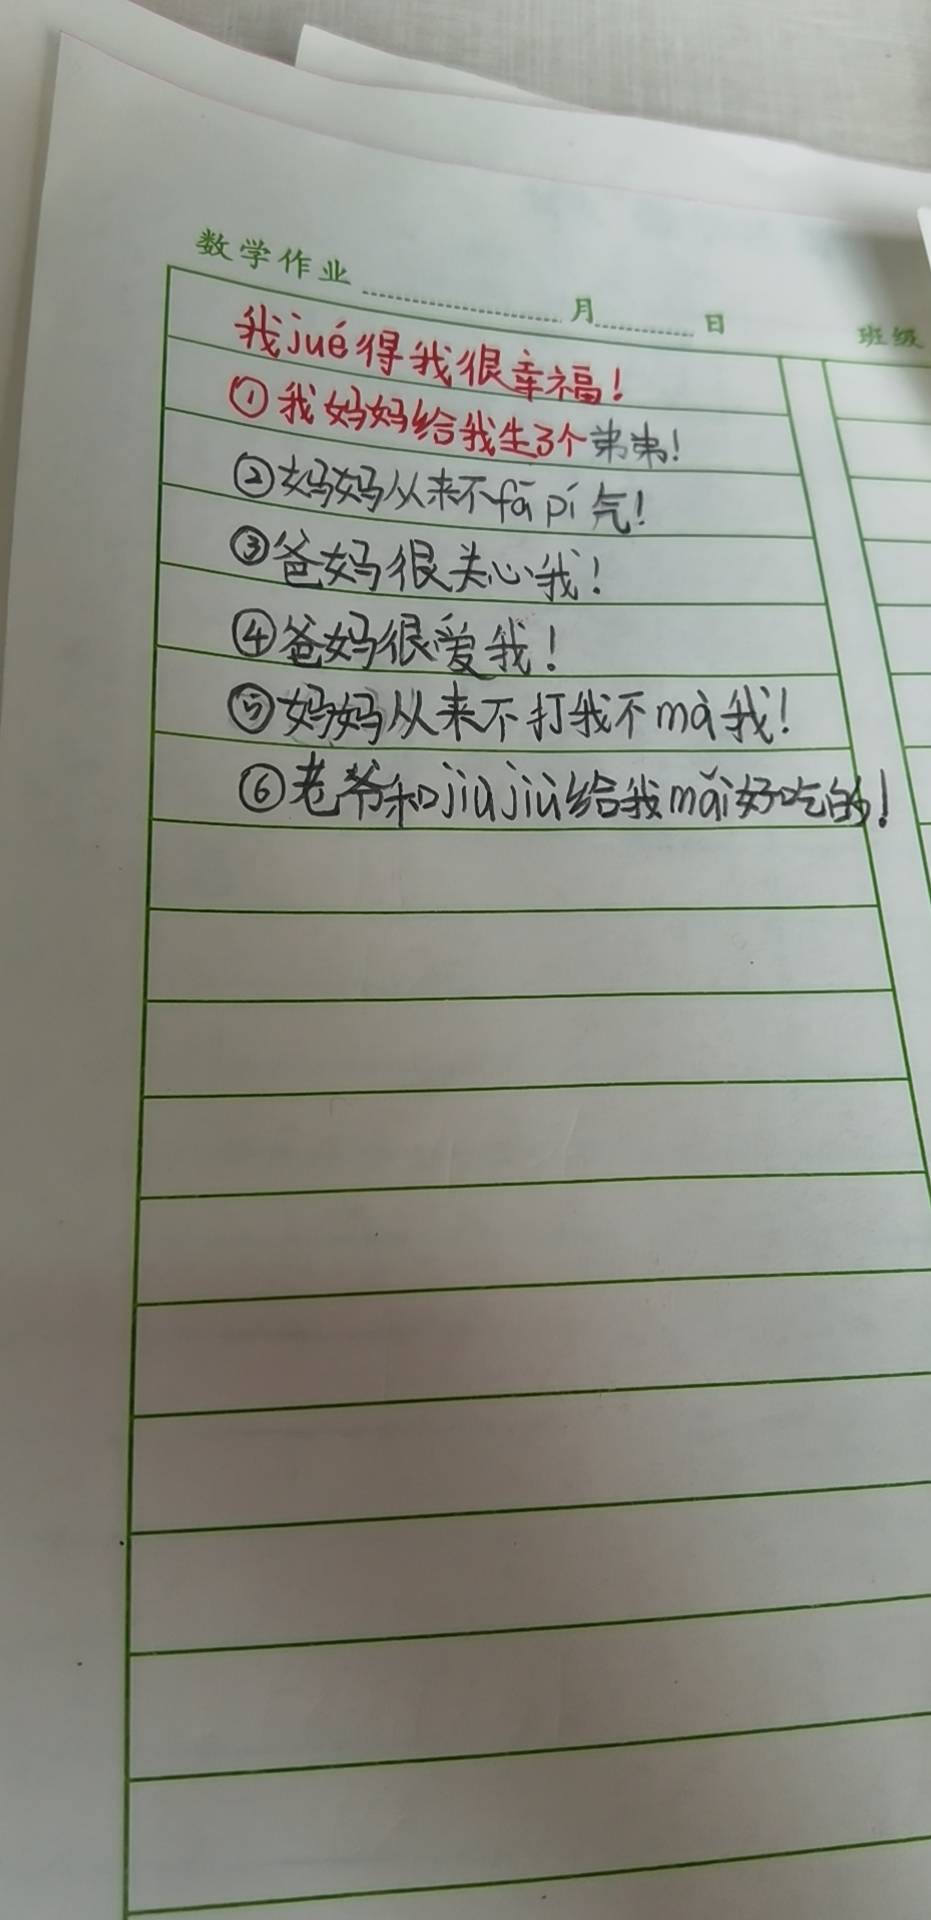 数学作业 月 日 班级
我jué得我很幸福！
①我妈妈给我生3个弟弟！
②妈妈从来不fā pí气！
③爸妈很关心我！
④爸妈很爱我！
⑤妈妈从来不打我不mà我！
⑥老爷和jiù jiù给我mǎi好吃的！